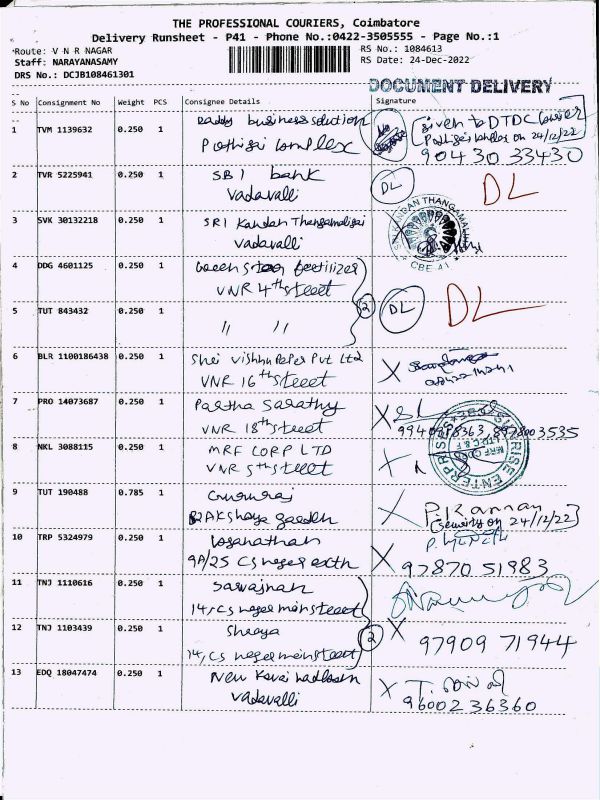 THE PROFESSIONAL COURIERS, Coimbatore
Delivery Runsheet - P41 - Phone No.:0422-3505555 - Page No.:1
Route: V N R NAGAR
RS No.: 1084613
Staff: NARAYANASAMY
RS Date: 24-Dec-2022
DRS No.: DCJB108461301
DOCUMENT DELIVERY
S No Consignment No Weight PCS Consignee Details Signature
1 TVM 1139632 0.250 1 business solution
Complex
Given to DTDC Courier
on 24/12/22
90430 33430
2 TVR 5225941 0.250 1 SBI bank DL DL
Vadavalli
3 SVK 30132218 0.250 1 SRI Kandan Thangamaligai
Vadavalli
CBE 41
4 DDG 4601125 0.250 1 fertilizer
VNR 4th street
2 DL DL
5 TUT 843432 0.250 1 " "
6 BLR 1100186438 0.250 1 Shri Vishnu Paper Pvt Ltd X
VNR 16th street
7 PRO 14073687 0.250 1 Partha Sarathy X
VNR 18th street
8 NKL 3088115 0.250 1 MRF CORP LTD
VNR 5th street
9 TUT 190488 0.785 1 Gururaj X P. Kannan
(Security on 24/12/22)
10 TRP 5324979 0.250 1 Loganathan
9A/25 CS nagar X 97870 51983
11 TNJ 1110616 0.250 1
14, CS nagar main street
2
12 TNJ 1103439 0.250 1 Shreya X 97909 71944
14, CS nagar main street
13 EDQ 18047474 0.250 1 New Kovai X T.
Vadavalli 96002 36360